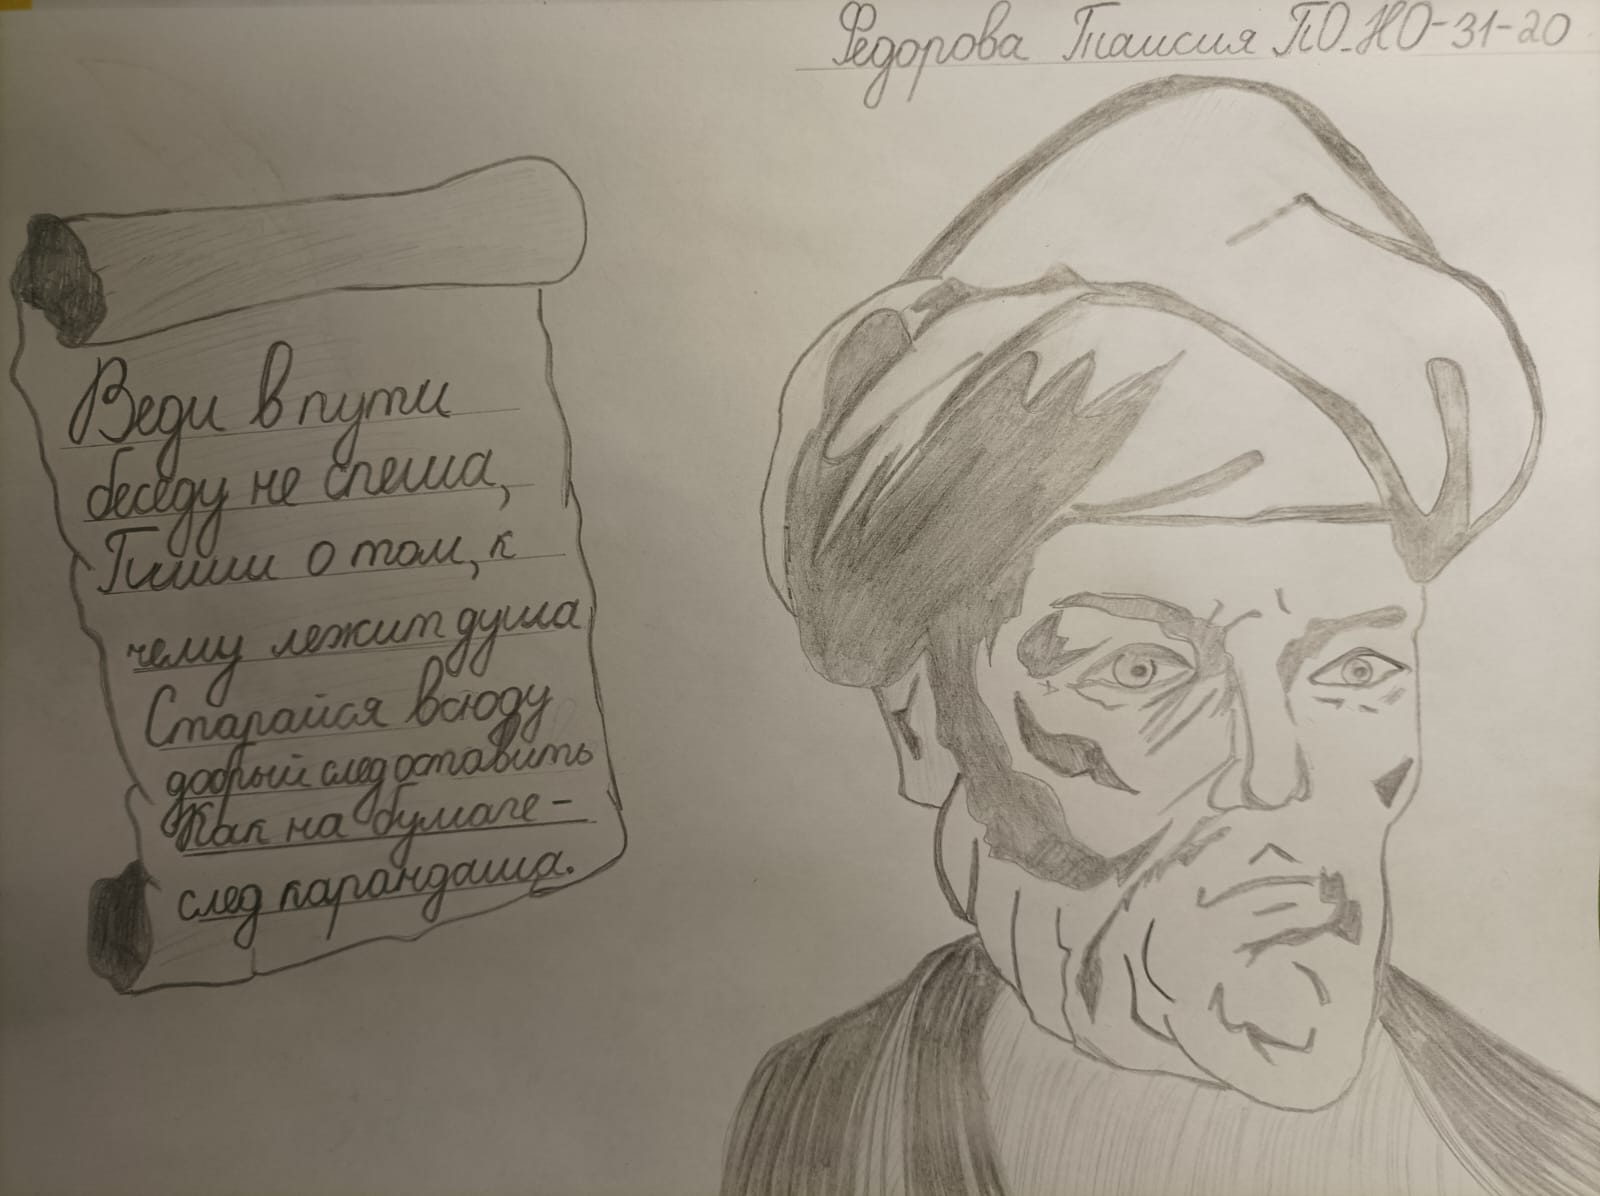 Федорова Таисия ПО.НО-31-20
Веди в пути
беседу не спеша,
Пиши о том, к
чему лежит душа
Старайся всюду
добрый след оставить
Как на бумаге -
след карандаша.